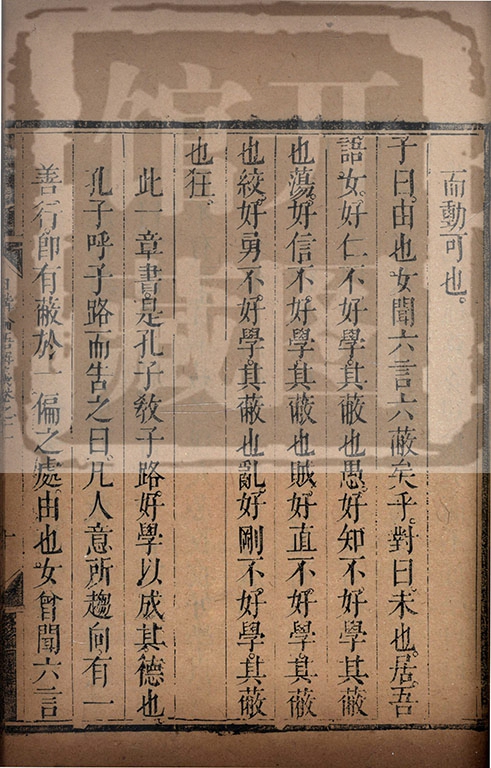 而動可也。
子曰。由也。女聞六言六蔽矣乎。對曰。未也。居。吾
語女。好仁不好學。其蔽也愚。好知不好學。其蔽
也蕩。好信不好學。其蔽也賊。好直不好學。其蔽
也絞。好勇不好學。其蔽也亂。好剛不好學。其蔽
也狂。
此一章書。是孔子敎子路好學以成其德也。
孔子呼子路而告之曰。凡人意所趨向。有一
善行。卽有蔽於一偏之處。由也。女曾聞六言
日講